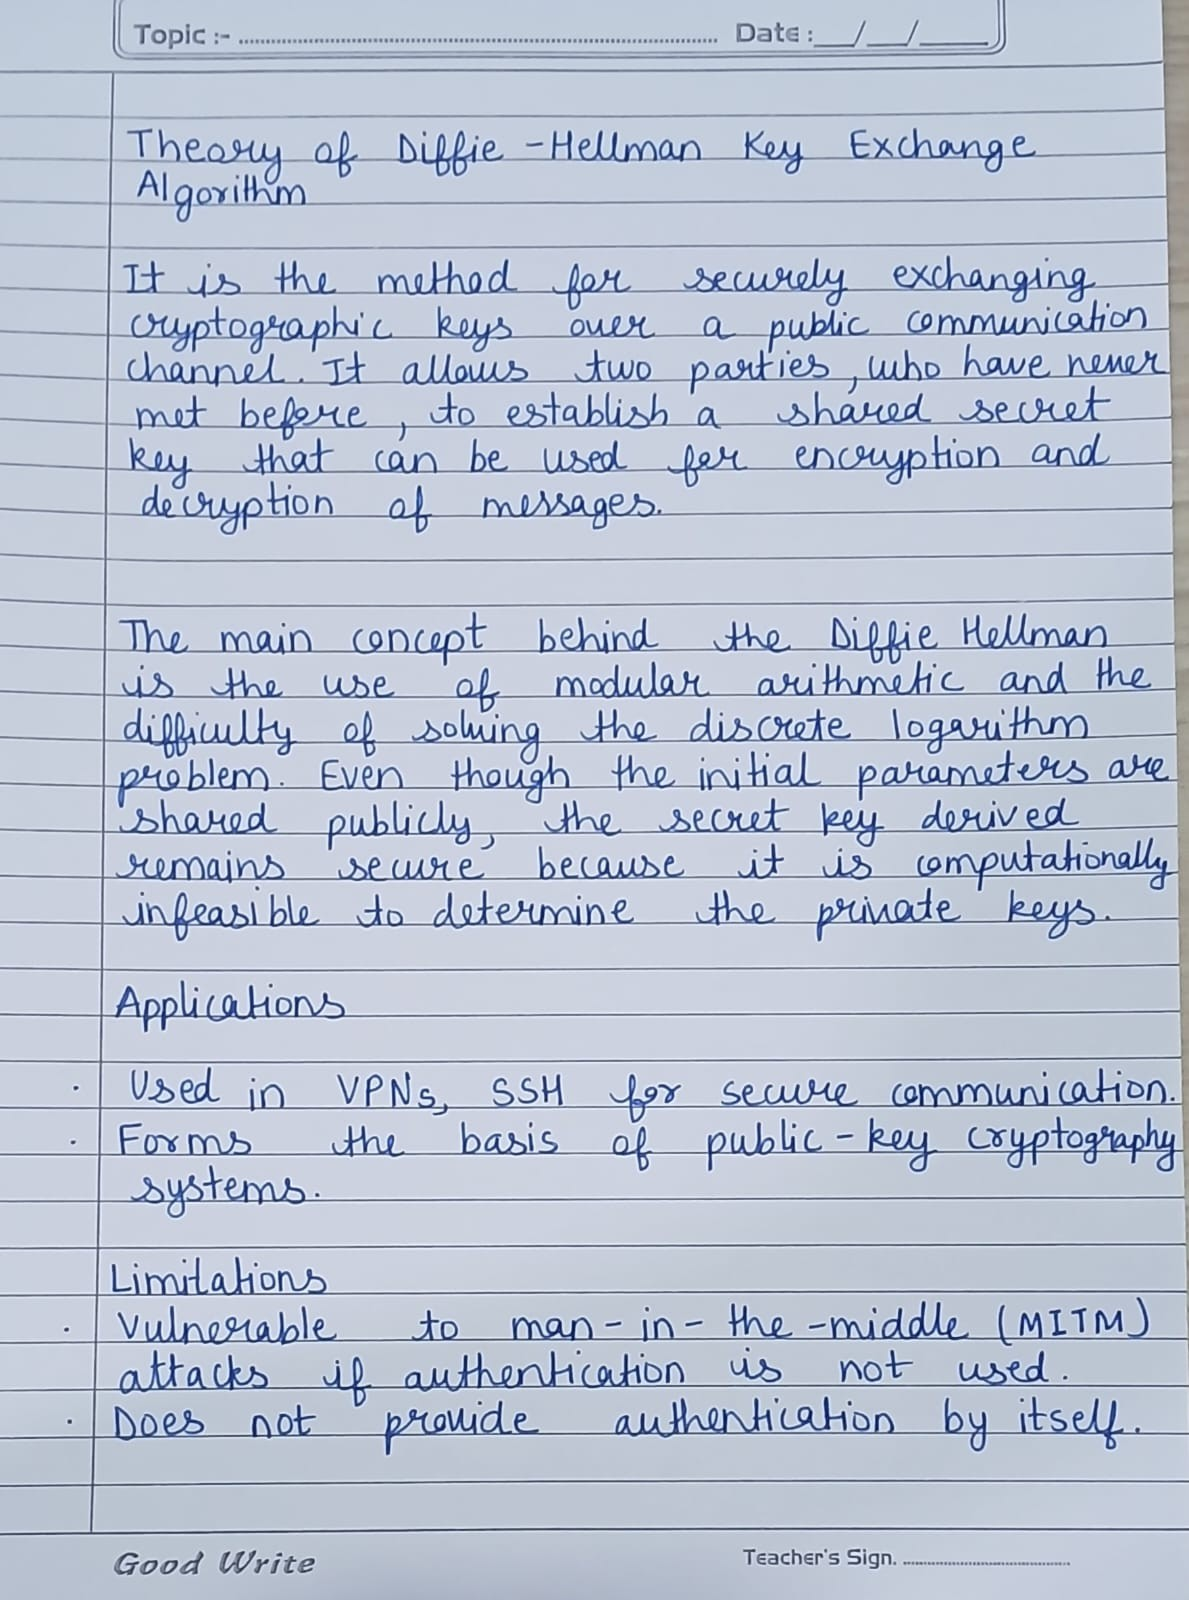 Topic :- ........................ Date : __/__/____
Theory of Diffie - Hellman Key Exchange
Algorithm
It is the method for securely exchanging
cryptographic keys over a public communication
channel. It allows two parties, who have never
met before, to establish a shared secret
key that can be used for encryption and
decryption of messages.
The main concept behind the Diffie Hellman
is the use of modular arithmetic and the
difficulty of solving the discrete logarithm
problem. Even though the initial parameters are
shared publicly, the secret key derived
remains secure because it is computationally
infeasible to determine the private keys.
Applications
· Used in VPNs, SSH for secure communication.
· Forms the basis of public - key cryptography
systems.
Limitations
· Vulnerable to man - in - the - middle (MITM)
attacks if authentication is not used.
· Does not provide authentication by itself.
Good Write Teacher's Sign. ........................